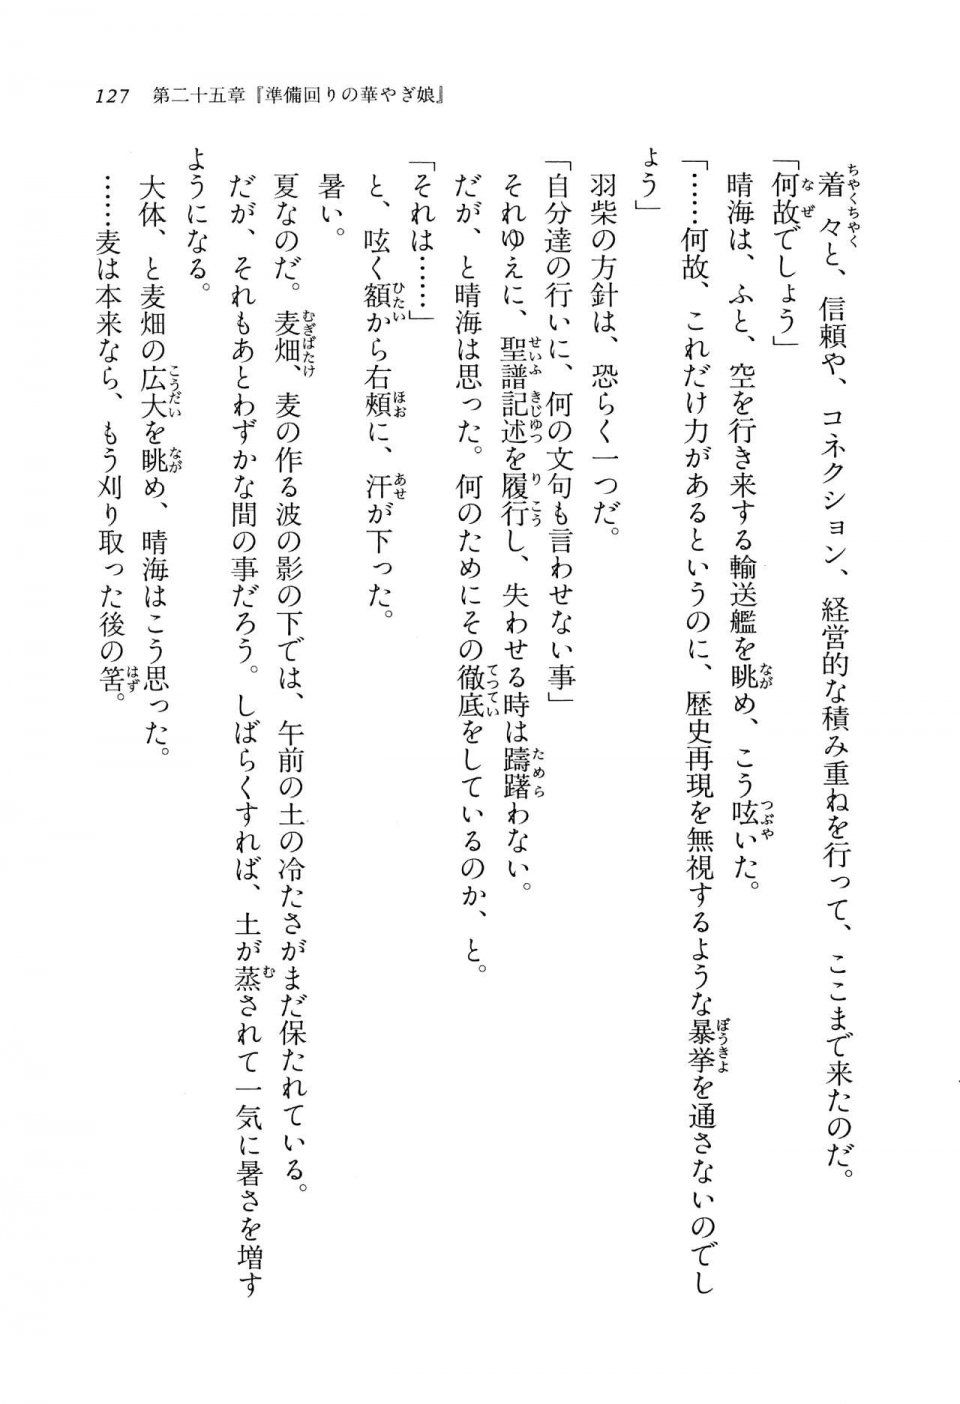 127　第二十五章『準備回りの華やぎ娘』
着々と、信頼や、コネクション、経営的な積み重ねを行って、ここまで来たのだ。
「何故でしょう」
晴海は、ふと、空を行き来する輸送艦を眺め、こう呟いた。
「……何故、これだけ力があるというのに、歴史再現を無視するような暴挙を通さないのでし
ょう」
羽柴の方針は、恐らく一つだ。
「自分達の行いに、何の文句も言わせない事」
それゆえに、聖譜記述を履行し、失わせる時は躊躇わない。
だが、と晴海は思った。何のためにその徹底をしているのか、と。
「それは……」
と、呟く額から右頰に、汗が下った。
暑い。
夏なのだ。麦畑、麦の作る波の影の下では、午前の土の冷たさがまだ保たれている。
だが、それもあとわずかな間の事だろう。しばらくすれば、土が蒸されて一気に暑さを増す
ようになる。
大体、と麦畑の広大を眺め、晴海はこう思った。
……麦は本来なら、もう刈り取った後の筈。